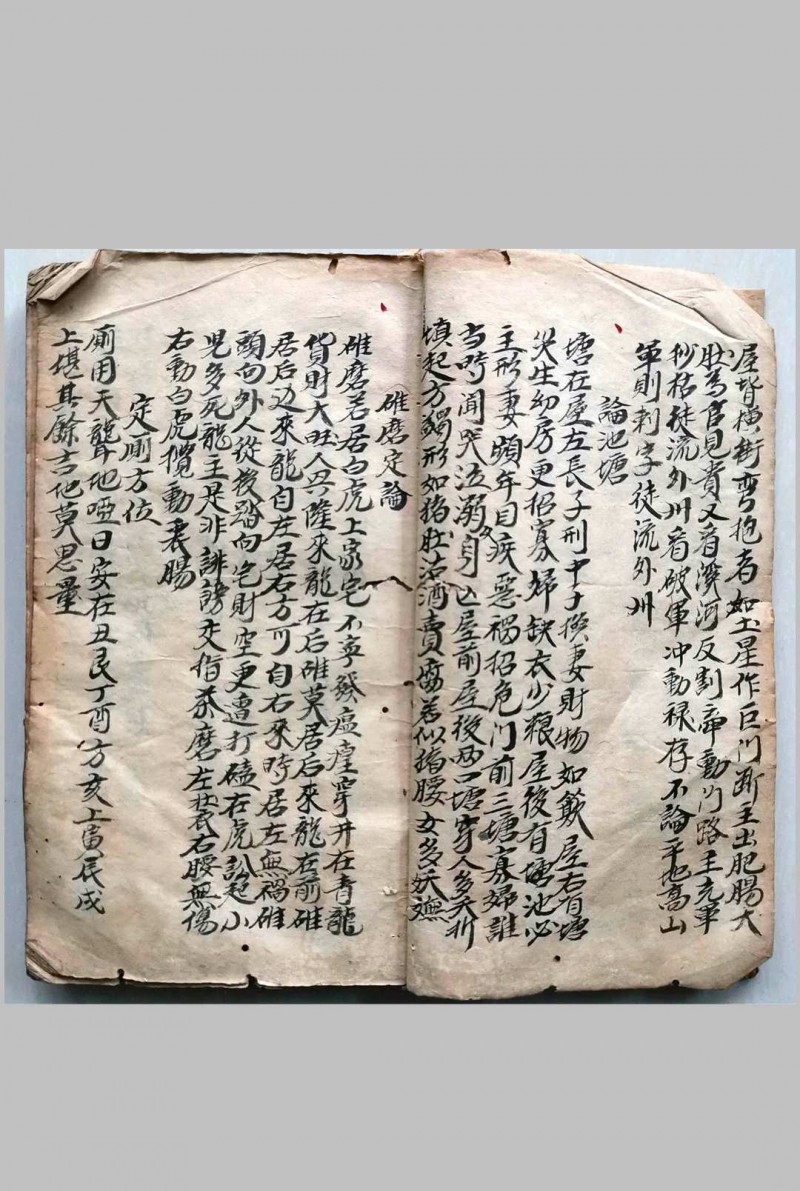 屋背橫街弯抱者如土星作巨门断主出肥腸大
肚為官見貴又看濱河反割帝動门路主充軍
抄枯徒流外州看破軍冲動禄存不論平地高山
軍則刺字徒流外州
論池塘
塘在屋左長子刑中子换妻財物如簸屋右有塘
災生幼房更招寡婦缺衣少粮屋後有塘池必
主形妻頻年目疾惡禍招危门前三塘寡婦誰
当時闻哭泣溺女身亡屋前屋後两口塘穿人多夭折
填起方觸形如猪肚沽酒賣腐若似猪腰女多妖嫵
碓磨定論
碓磨若居白虎上家宅不寧發瘟瘴穿井在青龍
貨財大旺人兴隆來龍在后碓莫居后來龍在前碓
居后边來龍自左居右方可自右來時居左無禍碓
頭向外人從後踏向宅財空更遭打磕在虎訟起小
児多死龍主是非誹謗交偹茶磨左壯衣右腰無傷
右動白虎攪動衷腸
定廁方位
廁用天聾地啞日安在丑艮丁酉方亥上寅辰戌
上堪其餘吉地莫思量